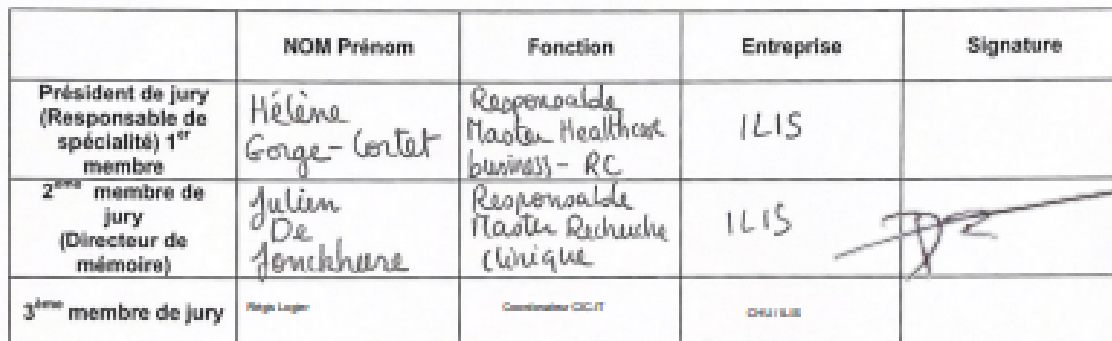 NOM Prénom
Fonction
Entreprise
Signature
Président de jury
(Responsable de
spécialité) 1er
membre
Hélène
Gorge-Cortet
Responsable
Master Healthcare
business - RC
ILIS
2ème membre de
jury
(Directeur de
mémoire)
Julien
De
Jonckheere
Responsable
Master Recherche
Clinique
ILIS
3ème membre de jury
Régis Logier
Coordonateur CIC-IT
CHU / ILIS